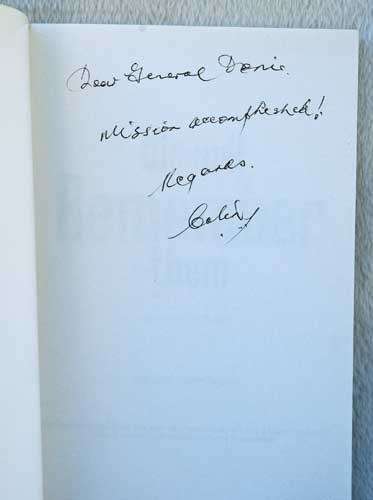 Dear General Donie.
Mission accomplished!
Regards.